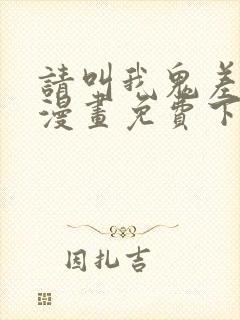 請叫我鬼差
漫畫免費下
因扎吉